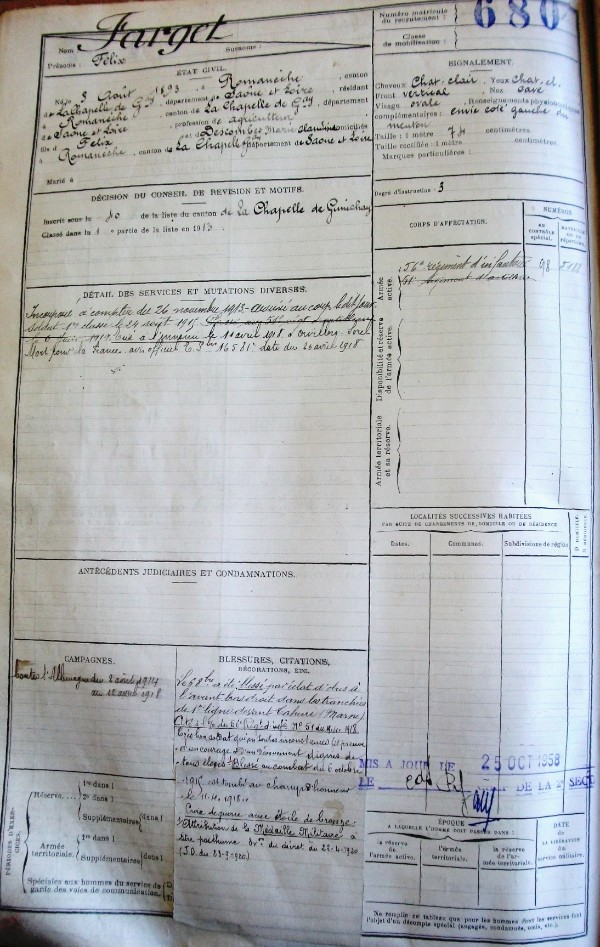 Farget
Nom
Prénoms : Félix
Surnoms :
Numéro matricule
du recrutement :
680
Classe
de mobilisation :
ÉTAT CIVIL.
Né le 8 Août 1893, à Romanèche, canton
de La Chapelle de G., département de Saône et Loire, résidant
à Romanèche, canton de La Chapelle de G., département
de Saône et Loire, profession de agriculteur
fils de Félix et de Descombes Marie Claudine domiciliés
à Romanèche, canton de La Chapelle département de Saône et Loire
Marié à
SIGNALEMENT.
Cheveux Chat. clair Yeux Chat. cl.
Front vertical Nez cave
Visage ovale Renseignements physionomiques
complémentaires : envie coté gauche du
menton
Taille : 1 mètre 74 centimètres.
Taille rectifiée : 1 mètre centimètres.
Marques particulières :
Degré d'instruction : 3
DÉCISION DU CONSEIL DE REVISION ET MOTIFS.
Inscrit sous le n° 40 de la liste du canton de La Chapelle de Guinchay
Classé dans la 1 partie de la liste en 1913
DÉTAIL DES SERVICES ET MUTATIONS DIVERSES.
Incorporé à compter du 26 novembre 1913. Arrivé au corps
Soldat 1re classe le 24 sept 1915.
Tué à l'ennemi le 11 avril 1918 à Orvillers Sorel
Mort pour la France. avis officiel 16581 date du 25 avril 1918
CORPS D'AFFECTATION.
NUMÉROS
AU
CONTRÔLE
spécial.
MATRICULE
OU DU
répertoire.
Armée
active.
56e régiment d'infanterie
Disponibilité et réserve
de l'armée active.
Armée territoriale
et sa réserve.
LOCALITÉS SUCCESSIVES HABITÉES
PAR SUITE DE CHANGEMENTS DE DOMICILE OU DE RÉSIDENCE
Dates.
Communes.
Subdivisions de région
D. DOMICILE.
R. RÉSIDENCE.
ANTÉCÉDENTS JUDICIAIRES ET CONDAMNATIONS.
CAMPAGNES.
Contre l'Allemagne du 2 août 1914
au 11 avril 1918
BLESSURES, CITATIONS,
DÉCORATIONS, ETC.
Le 6 8bre a été blessé par éclat d'obus à
l'avant bras droit dans les tranchées
de 1re ligne devant Tahure (Marne)
N° 51 du 1918
Très bon soldat qui en toutes circonstances a fait preuve
d'un courage et d'un dévouement dignes de
tous éloges. Blessé au combat du 6 octobre
1915 est tombé au champ d'honneur
le 11.4.1918.
Croix de guerre avec étoile de bronze.
Attribution de la Médaille Militaire à
titre posthume
(J.O. du 23.9.1920)
MIS A JOUR LE 25 OCT 1958
LE DE LA 2e SECT
PÉRIODES D'EXER-
CICES.
Réserve....
1re dans l
2e dans l
Supplémentaires dans l
Armée
territoriale.
1re dans l
Supplémentaires dans l
Spéciales aux hommes du service de
garde des voies de communication.
ÉPOQUE
A LAQUELLE L'HOMME DOIT PASSER DANS :
la réserve
de l'armée active.
l'armée
territoriale.
la réserve
de l'ar-
mée territoriale.
DATE
DE LA
LIBÉRATION
du
service militaire.
Ne remplir ce tableau que pour les hommes dont les services font
l'objet d'un décompte spécial (engagés, condamnés, omis, etc.).